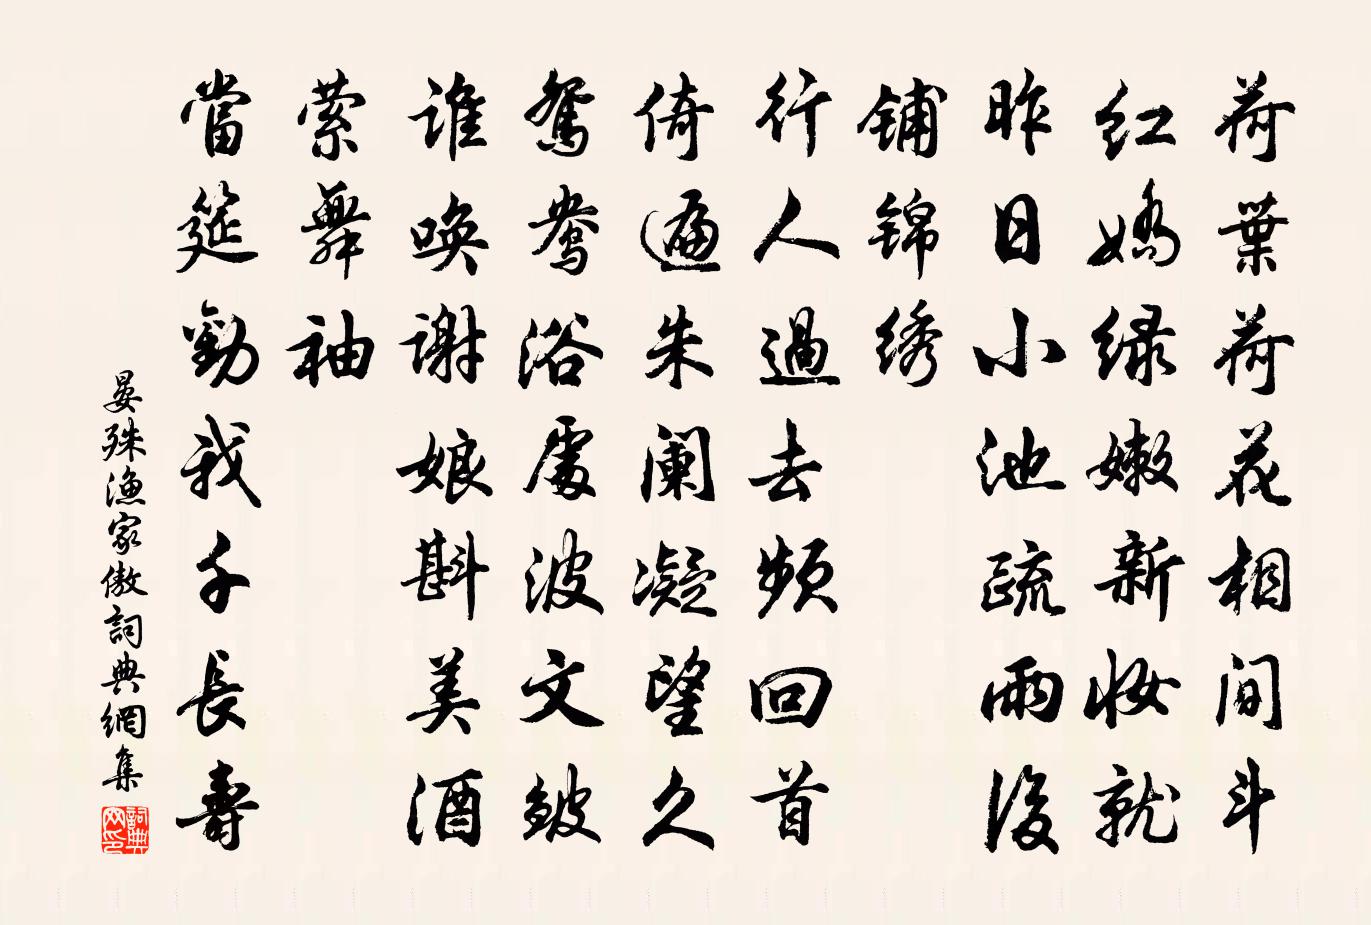 荷葉荷花相間斗
红嬌绿嫩新妆就
昨日小池疏雨後
铺锦绣
行人過去频回首
倚遍朱阑凝望久
鸳鸯浴處波文皱
谁唤谢娘斟美酒
萦舞袖
當筵勸我千長壽
晏殊漁家傲詞典網集
詞典
网印